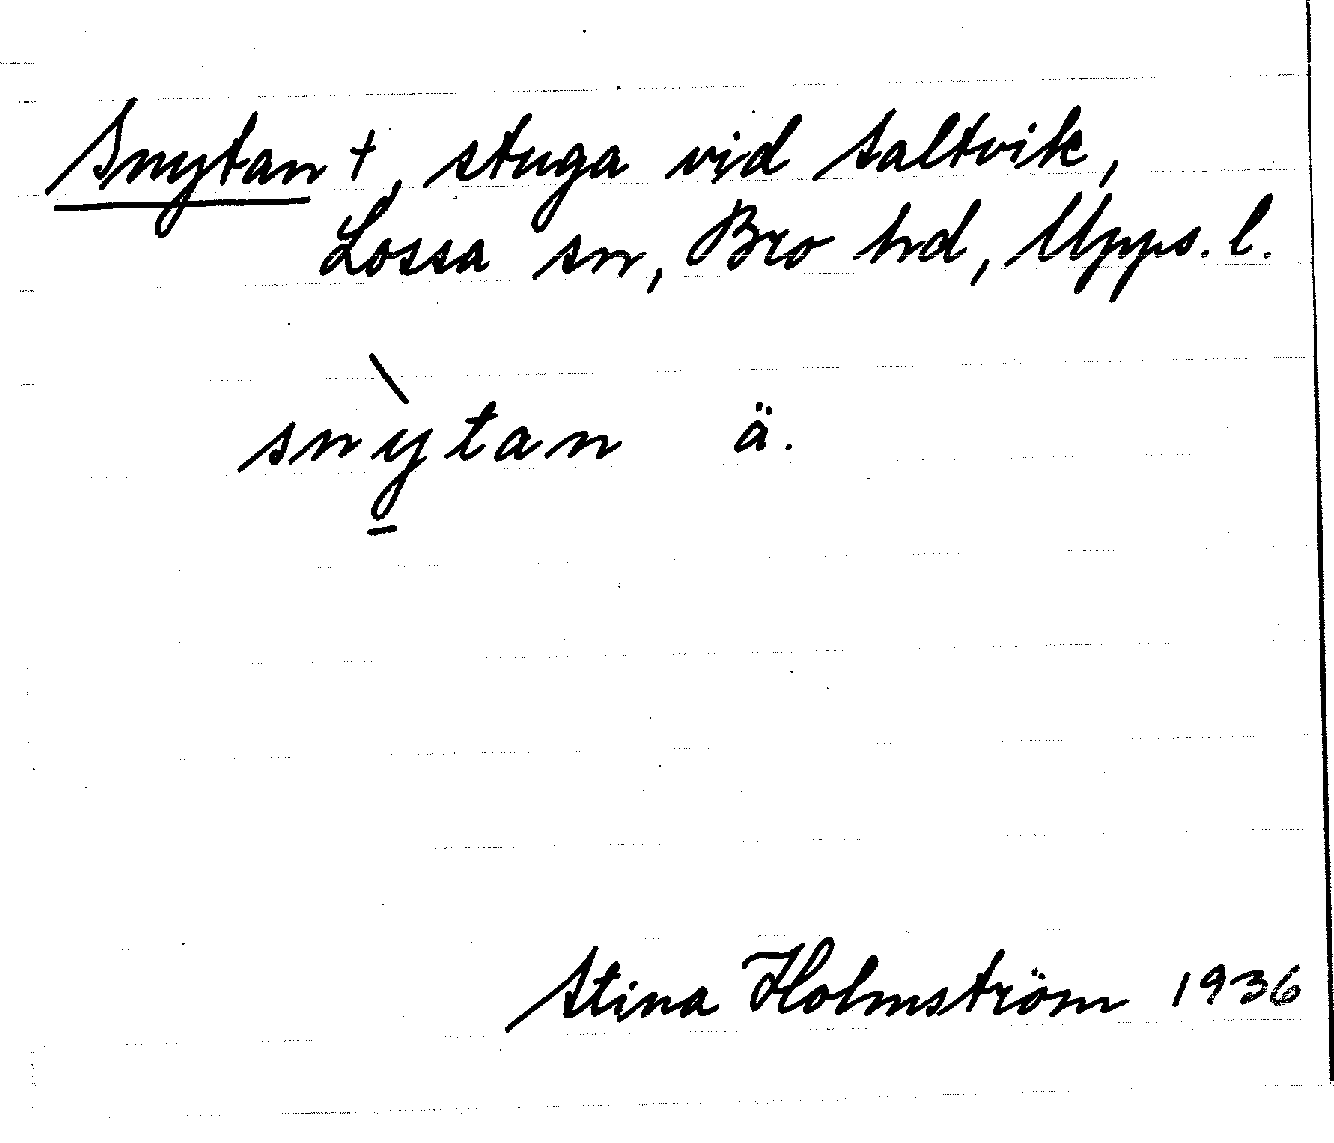 Snytan †, stuga vid Saltvik,
Lossa sn, Bro hd, Upps. l.
snỳ̱tan ä.
Stina Holmström 1936